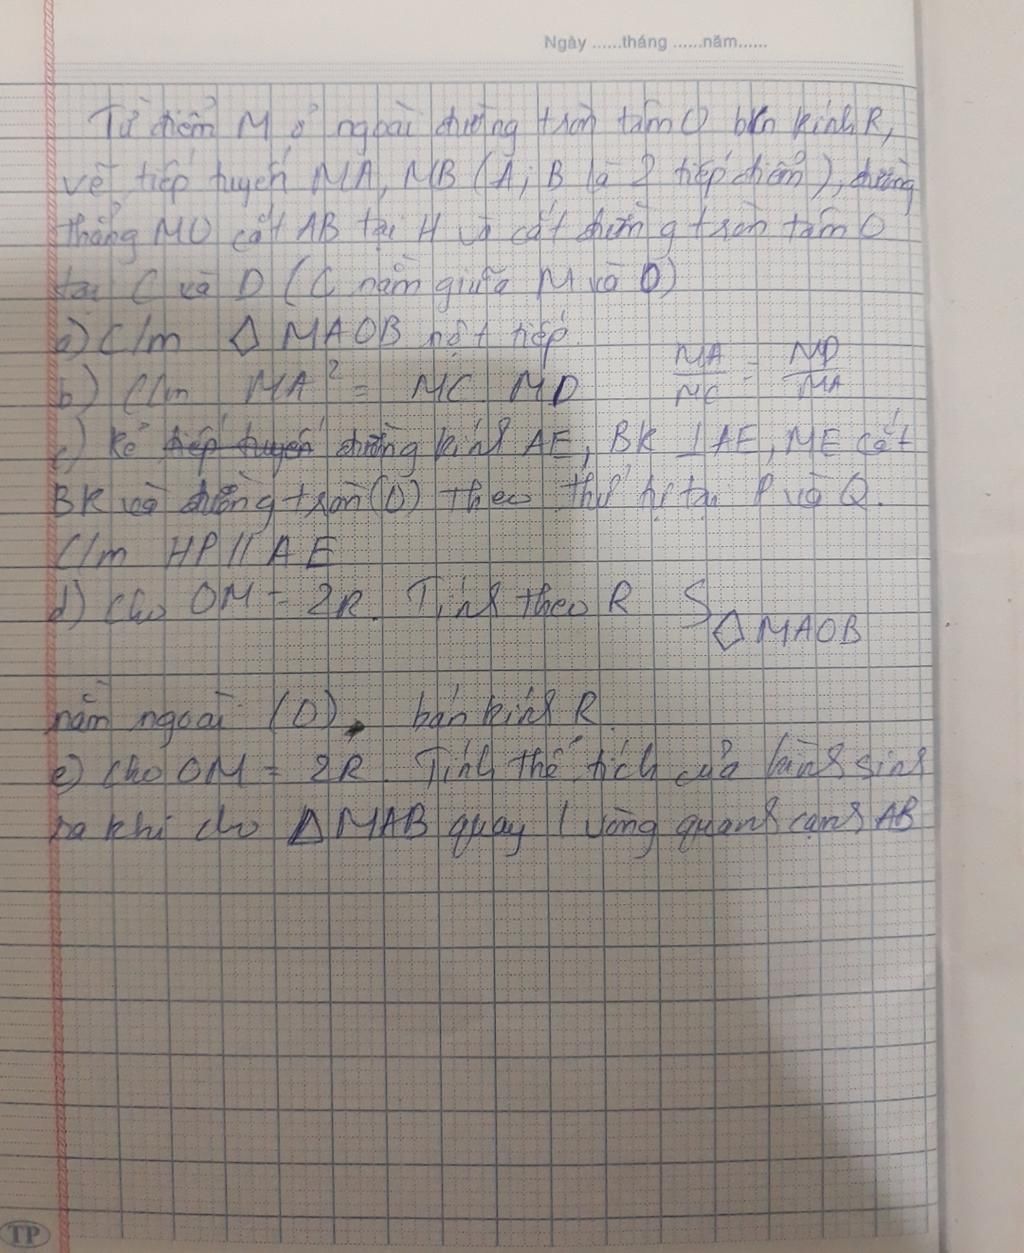 Ngày ......tháng ......năm......
Từ điểm M ở ngoài đường tròn tâm O bán kính R,
vẽ tiếp tuyến MA, MB (A; B là 2 tiếp điểm), đường
thẳng MO cắt AB tại H và cắt đường tròn tâm O
tại C và D (C nằm giữa M và O)
a) C/m ◇ MAOB nội tiếp
b) C/m MA² = MC MD MA/MC = MD/MA
c) Kẻ tiếp tuyến đường kính AE, BK ⊥ AE, ME cắt
BK và đường tròn (O) theo thứ tự tại P và Q.
C/m HP // AE
d) Cho OM = 2R. Tính theo R S◇MAOB
nằm ngoài (O), bán kính R
e) Cho OM = 2R. Tính thể tích của hình sinh
ra khi cho ΔMAB quay 1 vòng quanh cạnh AB
TP